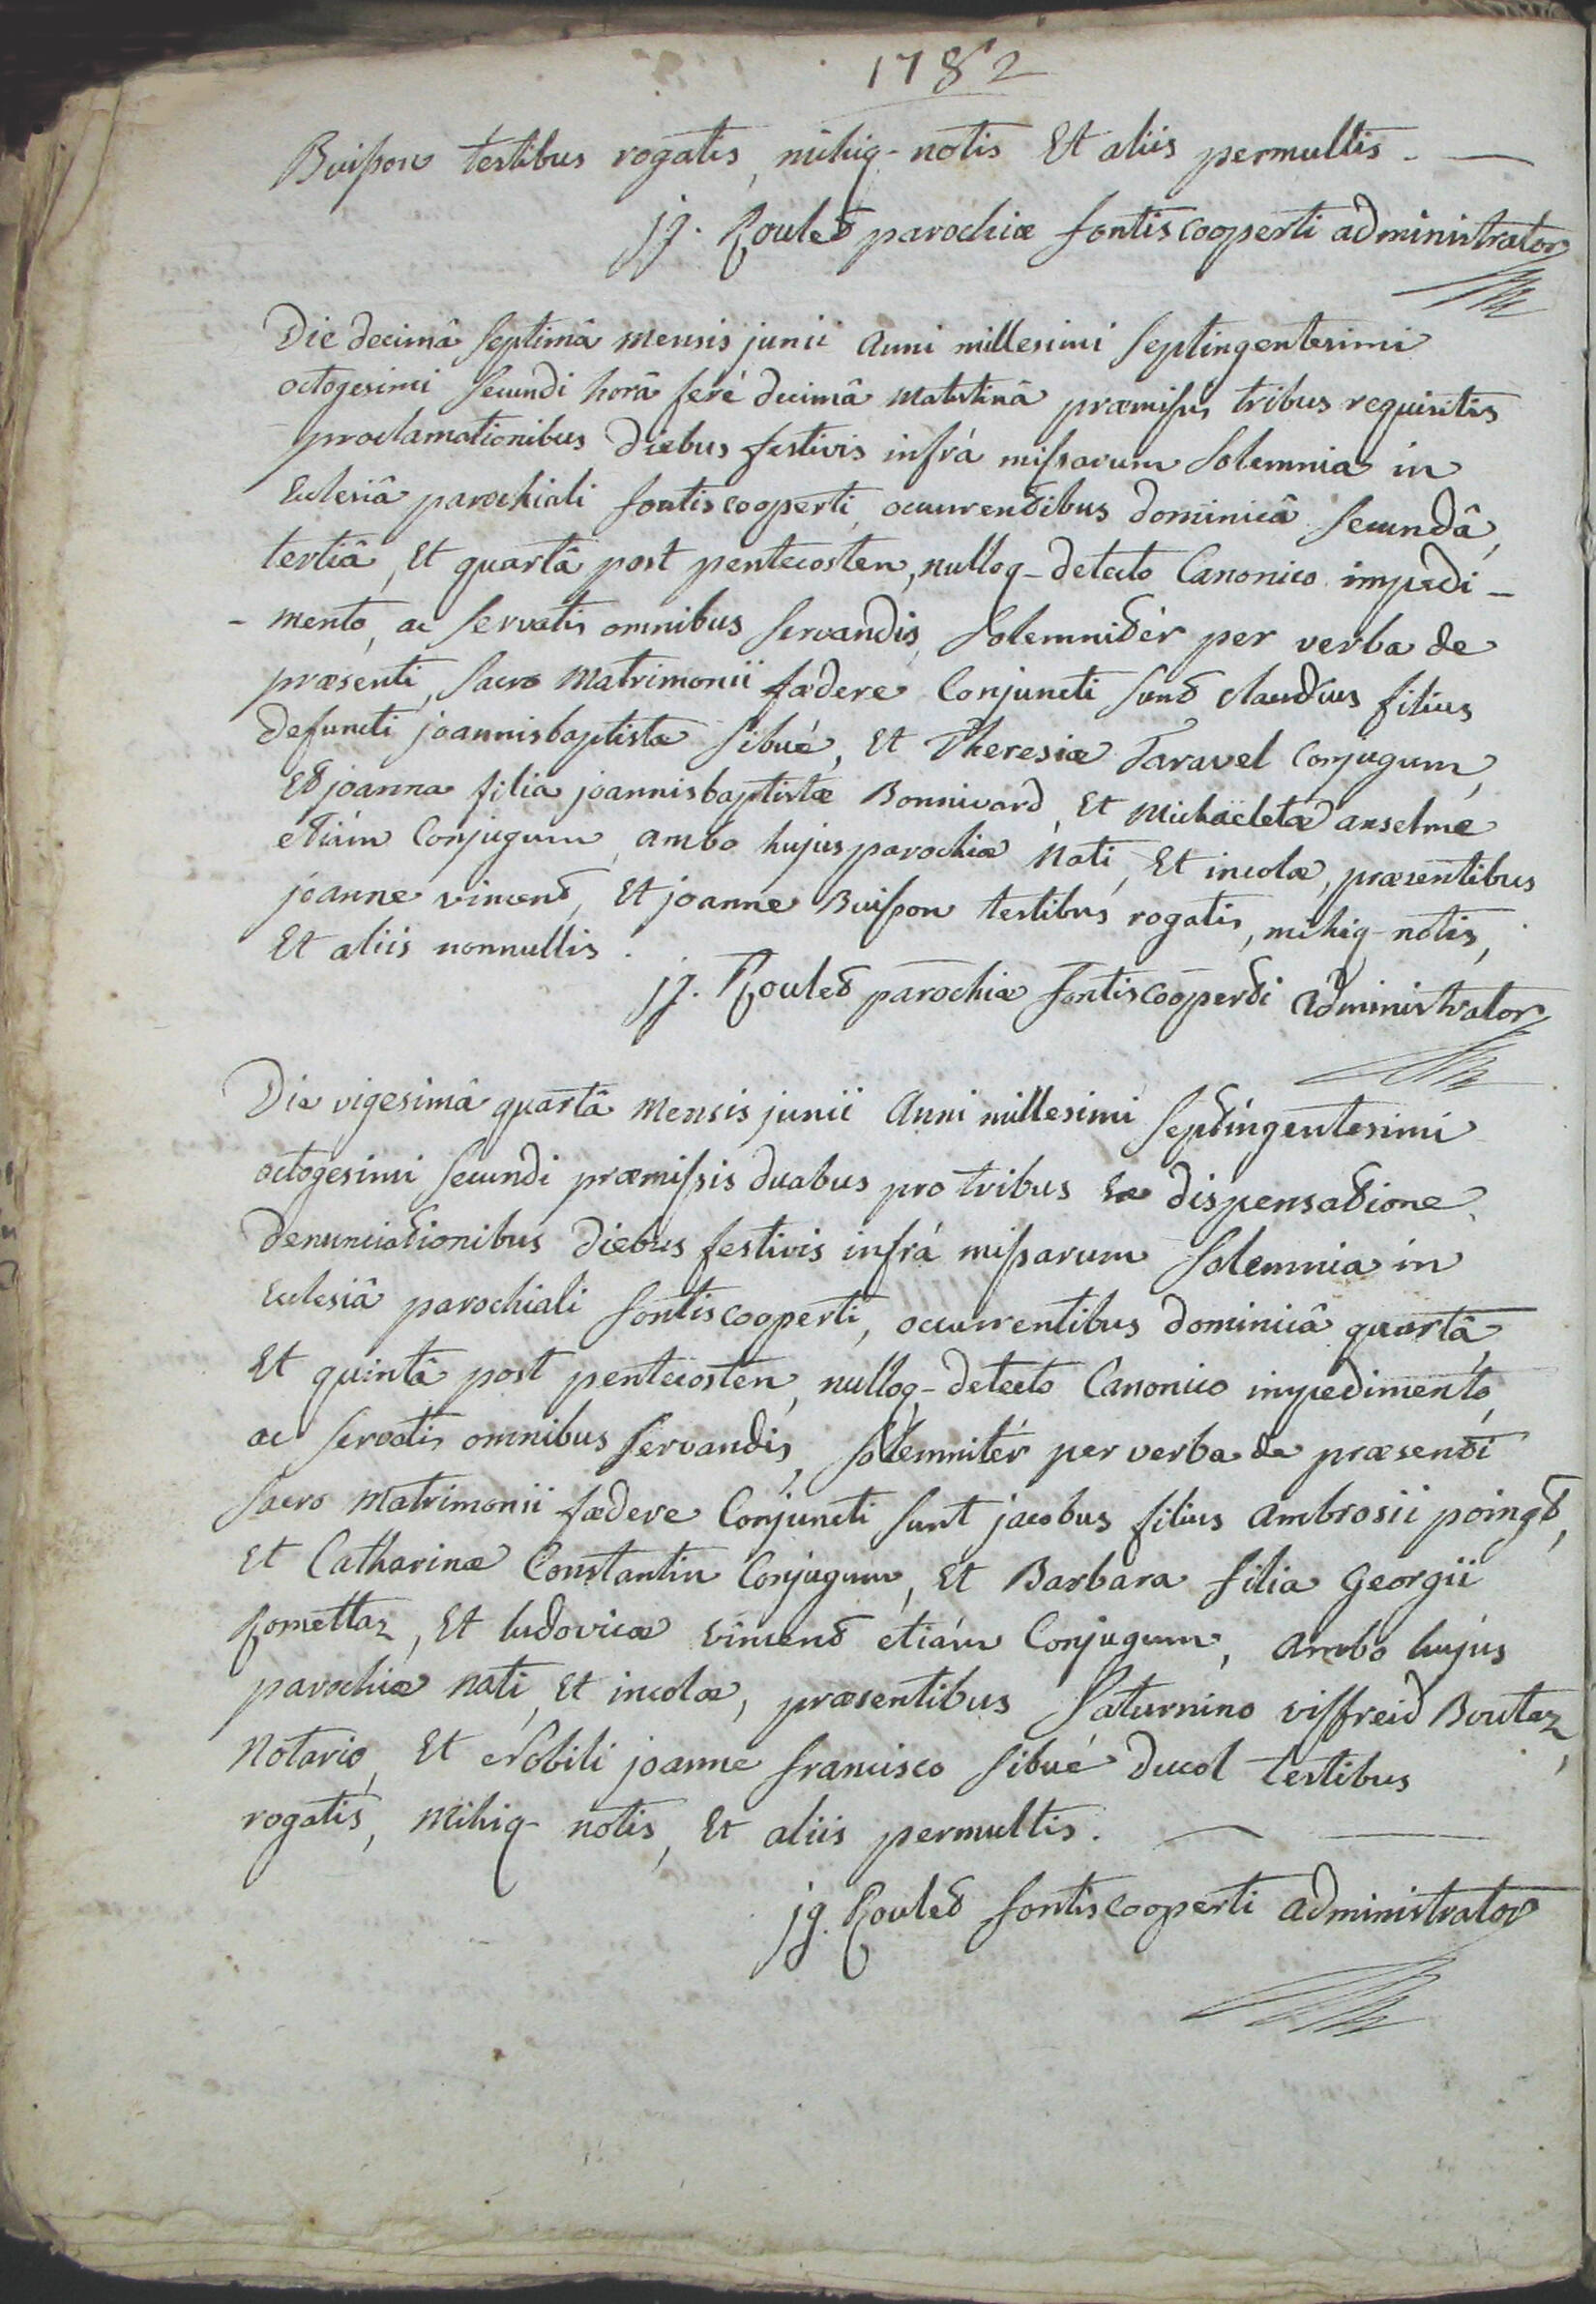 1782
Buisson testibus rogatis, mihiq- notis Et aliis permultis.
jg. Roulet parochiæ fontiscooperti administrator
Die decimâ septimâ mensis junii anni millesimi septingentesimi
octogesimi secundi horâ ferè decimâ matutinâ præmissis tribus requisitis
proclamationibus diebus festivis infrà missarum solemnia in
Ecclesiâ parochiali fontiscooperti, occurrentibus dominicâ secundâ,
tertiâ, Et quartâ post pentecosten, nulloq- detecto Canonico impedi-
-mento, ac servatis omnibus servandis, solemnitèr per verba de
præsenti, sacro Matrimonii fœdere Conjuncti sunt claudius filius
defuncti joannisbaptistæ sibué, Et Theresiæ Taravel Conjugum,
Et joanna filia joannisbaptistæ Bonnivard, Et Michaëletæ anselme
etiàm Conjugum, ambo hujus parochiæ Nati, Et incolæ, præsentibus
joanne vincent, Et joanne Buisson testibus rogatis, mihiq- notis,
Et aliis nonnullis.
jg. Roulet parochiæ fontiscooperti administrator
Die vigesimâ quartâ mensis junii anni millesimi septingentesimi
octogesimi secundi præmissis duabus pro tribus Ex dispensatione
denunciationibus diebus festivis infrà missarum solemnia in
Ecclesiâ parochiali fontiscooperti, occurrentibus dominicâ quartâ,
Et quintâ post pentecosten, nulloq- detecto Canonico impedimento,
ac servatis omnibus servandis, solemnitèr per verba de præsenti
sacro Matrimonii fœdere Conjuncti sunt jacobus filius ambrosii poingt,
Et Catharinæ Constantin Conjugum, Et Barbara filia Georgii
Romettaz, Et ludovicæ vincent etiàm Conjugum, ambo hujus
parochiæ nati, Et incolæ, præsentibus saturnino viffreid Boutaz,
Notario, Et Nobili joanne francisco sibué ducol testibus
rogatis, Mihiq- notis, Et aliis permultis.
jg. Roulet fontiscooperti administrator